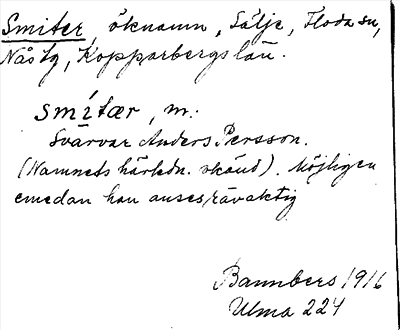 Smiter, öknamn, Sälje, Floda sn,
Nås tg, Kopparbergs län.
smítær, m.
Svarvar Anders Persson.
(Namnets härledn. okänd). Möjligen
emedan han anses rävaktig
Bannbers 1916
Ulma 224